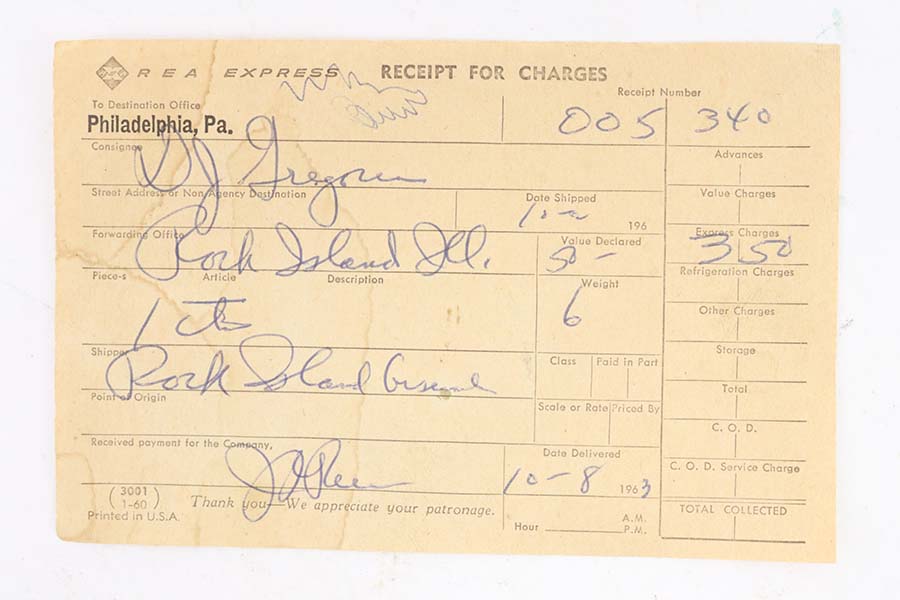 REA EXPRESS RECEIPT FOR CHARGES
Receipt Number
To Destination Office
Philadelphia, Pa.
005 340
Consignee
DJ
Advances
Street Address or Non Agency Destination
Date Shipped
196
Value Charges
Forwarding Office
Rock Island Ill.
Value Declared
50 -
Express Charges
3 50
Piece-s Article Description
Weight
Refrigeration Charges
1
6
Other Charges
Shipper
Rock Island Arsenal
Class Paid in Part
Storage
Point of Origin
Scale or Rate Priced By
Total
C. O. D.
Received payment for the Company,
Date Delivered
10-8 1963
C. O. D. Service Charge
(3001 1-60)
Thank you—We appreciate your patronage.
Printed in U.S.A.
Hour A.M. P.M.
TOTAL COLLECTED